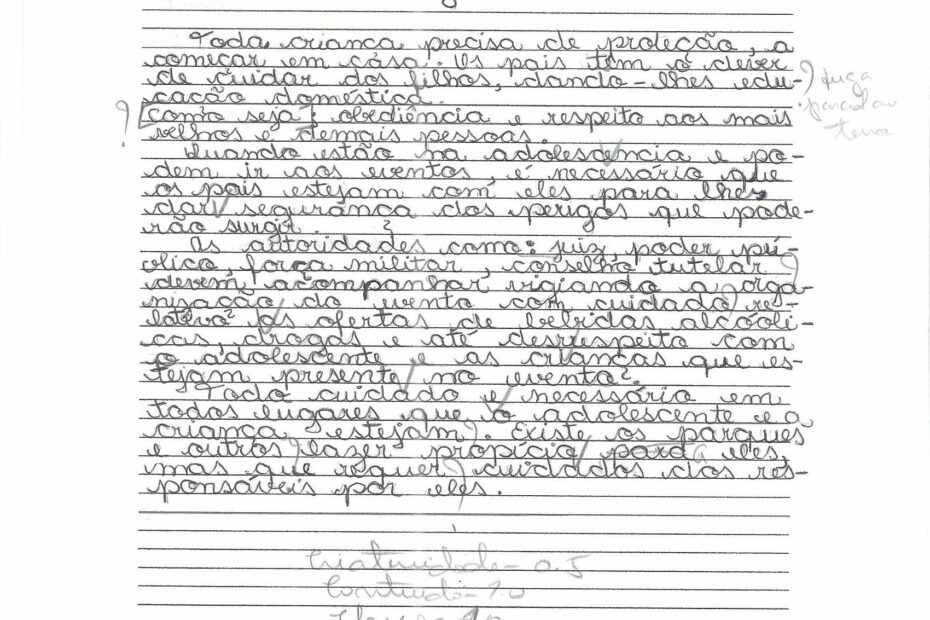 Toda criança precisa de proteção, a
começar em casa. Os pais têm o dever
de cuidar dos filhos, dando-lhes edu-
cação doméstica.
fuga
? [como seja: obediência e respeito aos mais
velhos e demais pessoas.
Quando estão na adolescência e po-
dem ir aos eventos, é necessário que
os pais estejam com eles para lhes
dar segurança dos perigos que pode-
rão surgir.
As autoridades como: juiz, poder pú-
blico, força militar, conselho tutelar
devem acompanhar vigiando a orga-
nização do evento com cuidado re-
lativo? as ofertas de bebidas alcóoli-
cas, drogas e até desrespeito com
o adolescente e as crianças que es-
tejam presente no evento?.
Todo cuidado é necessário em
todos lugares que o adolescente e a
criança estejam. Existe os parques
e outros lazer propício para eles,
mas que requer cuidados dos res-
ponsáveis por eles.
Criatividade - 0.5
Conteúdo - 1.0